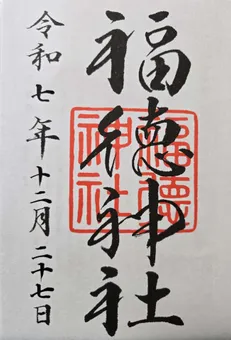 福徳神社
令和七年十二月二十七日
福徳神社